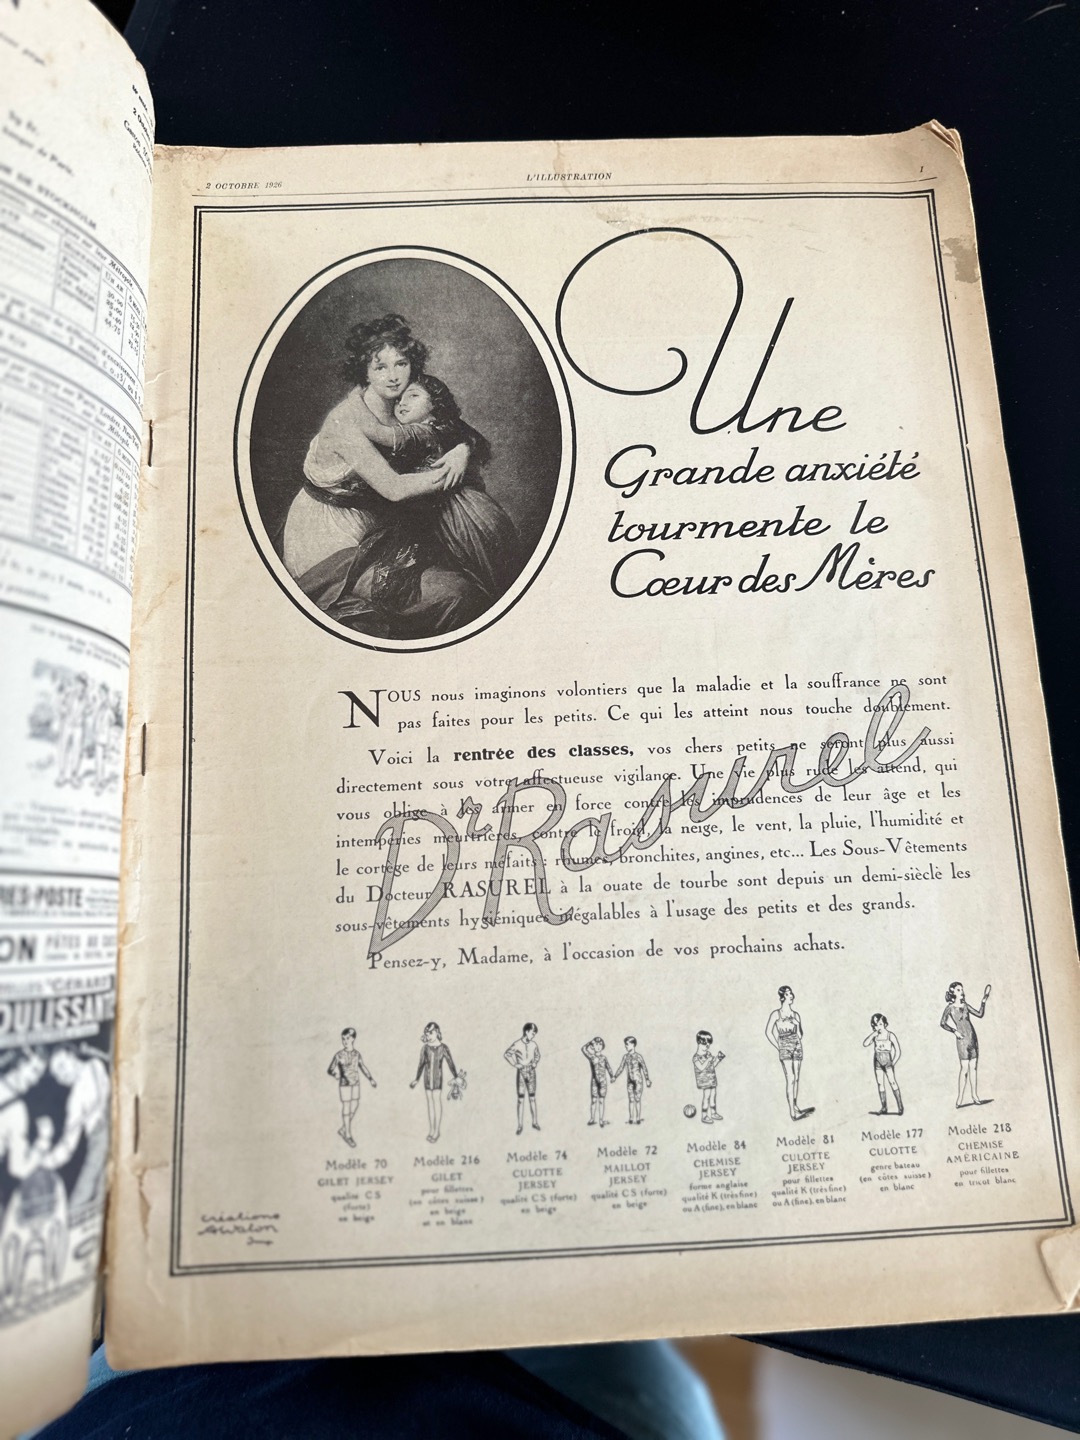 2 OCTOBRE 1926
L'ILLUSTRATION
1
Une
Grande anxiété
tourmente le
Cœur des Mères
NOUS nous imaginons volontiers que la maladie et la souffrance ne sont
pas faites pour les petits. Ce qui les atteint nous touche doublement.
Voici la rentrée des classes, vos chers petits ne seront plus aussi
directement sous votre affectueuse vigilance. Une vie plus rude les attend, qui
vous oblige à les armer en force contre les imprudences de leur âge et les
intempéries meurtrières, contre le froid, la neige, le vent, la pluie, l'humidité et
le cortège de leurs méfaits : rhumes, bronchites, angines, etc... Les Sous-Vêtements
du Docteur RASUREL à la ouate de tourbe sont depuis un demi-siècle les
sous-vêtements hygiéniques inégalables à l'usage des petits et des grands.
Pensez-y, Madame, à l'occasion de vos prochains achats.
Dr Rasurel
Modèle 70
GILET JERSEY
qualité CS
(forte)
en beige
Modèle 216
GILET
pour fillettes
(en côtes suisse)
en beige
et en blanc
Modèle 74
CULOTTE
JERSEY
qualité CS (forte)
en beige
Modèle 72
MAILLOT
JERSEY
qualité CS (forte)
en beige
Modèle 84
CHEMISE
JERSEY
forme anglaise
qualité K (très fine)
ou A (fine), en blanc
Modèle 81
CULOTTE
JERSEY
pour fillettes
qualité K (très fine)
ou A (fine), en blanc
Modèle 177
CULOTTE
genre bateau
(en côtes suisse)
en blanc
Modèle 218
CHEMISE
AMÉRICAINE
pour fillettes
en tricot blanc
créations
RES-POSTE
ON
PÂTES AU
OULISSANT